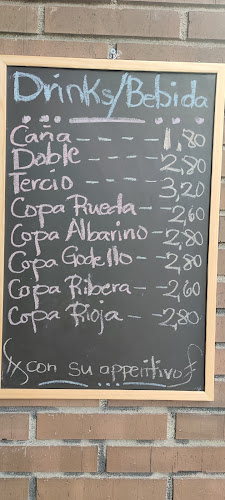 Drinks/Bebida
Caña - - - - 1,80
Doble - - - - 2,80
Tercio - - - 3,20
Copa Rueda - - 2,60
Copa Albarino - - 2,80
Copa Godello - - 2,80
Copa Ribera - - 2,60
Copa Rioja - - 2,80
con su apperitivo